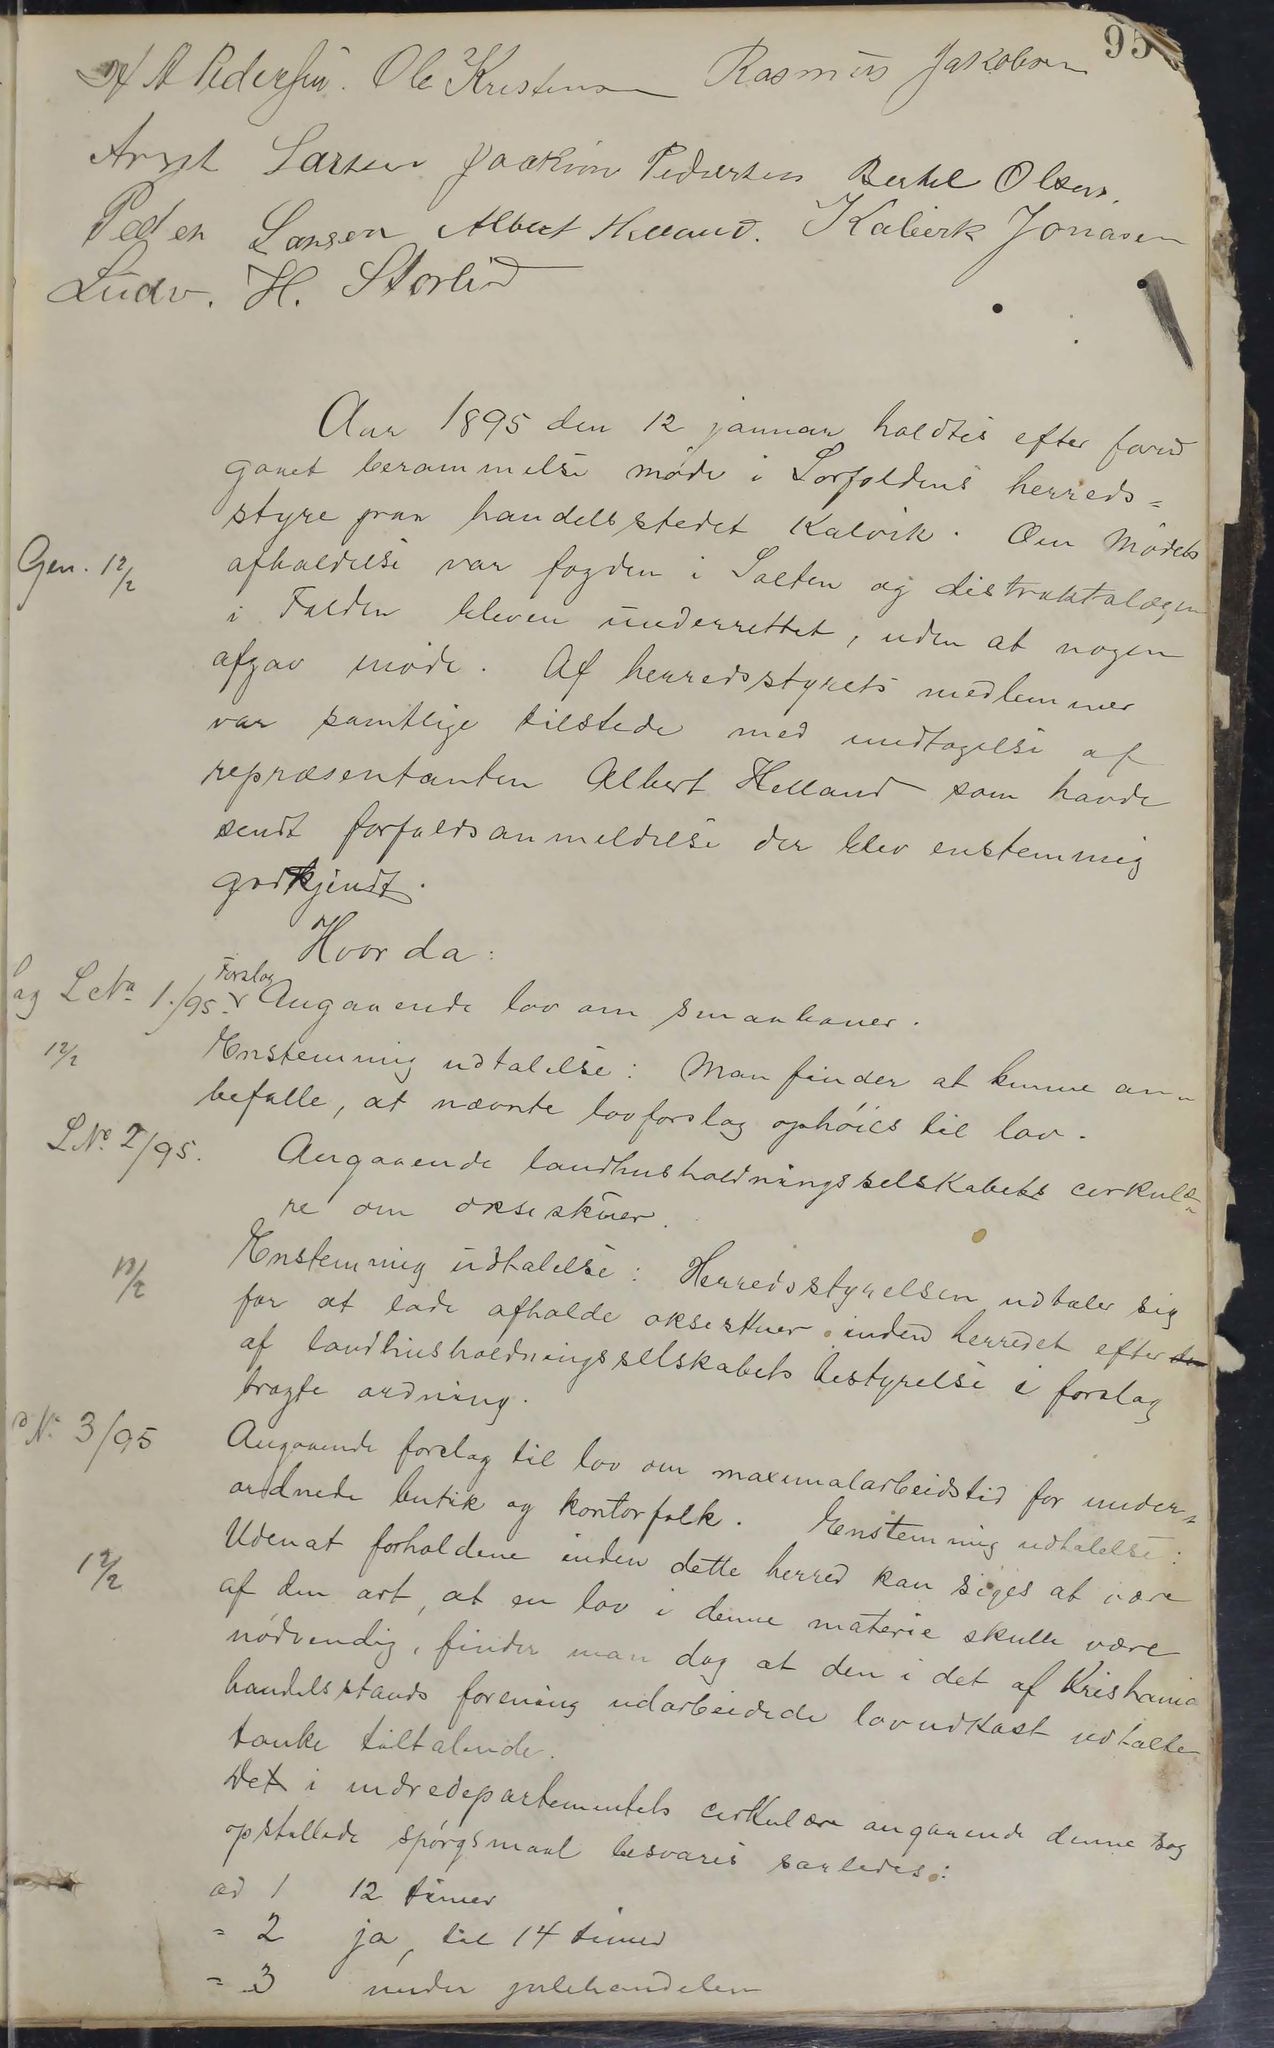 95
A Pedersen. Ole Kristensen Rasmus Jakobsen
Arnt Larsen Joakim Pedersen Bertel Olsen.
Peder Larsen Albert Helland. Kalierk Jonasen
Ludv. H. Storlid
Aar 1895 den 12 januar holdtes efter forud
gaaet berammelse møde i Sørfoldens herreds=
styre paa handelsstedet Kalvik. Om Mødets
Gen. 12/2 afholdelse var fogden i Salten og distriktslægen
i Folden bleven underrettet, uden at nogen
afgav møde. Af herredsstyrets medlemmer
var samtlige tilstede med undtagelse af
repræsentanten Albert Helland som havde
sendt forfaldsanmeldelse der blev enstemmig
godkjendt.
Hvor da:
Sag L No 1./95. Forslag Angaaende lov om smaabaner.
12/2 Enstemmig udtalelse: Man finder at kunne an=
befalle, at nævnte lovforslag ophöies til lov.
L No. 2/95. Angaaende landhusholdningsselskabets cirkulæ=
re om okseskuer.
12/2 Enstemmig udtalelse: Herredsstyrelsen udtaler sig
for at lade afholde okseskuer inden herredet efter den
af landhusholdningsselskabets bestyrelse i forslag
bragte ordning.
No. 3/95 Angaaende forslag til lov om maximalarbeidstid for under=
ordnede butik og kontorfolk. Enstemmig udtalelse:
12/2 Uden at forholdene inden dette herred kan siges at være
af den art, at en lov i denne materie skulle være
nödvendig, finder man dog at den i det af Kristiania
handelsstands forening udarbeidede lovudkast udtalte
tanke tiltalende.
Det i indredepartementets cirkulære angaaende denne sag
opstillede spörgsmaal besvares saaledes:
ad 1 12 timer
= 2 ja, til 14 timer
= 3 under julehandelen